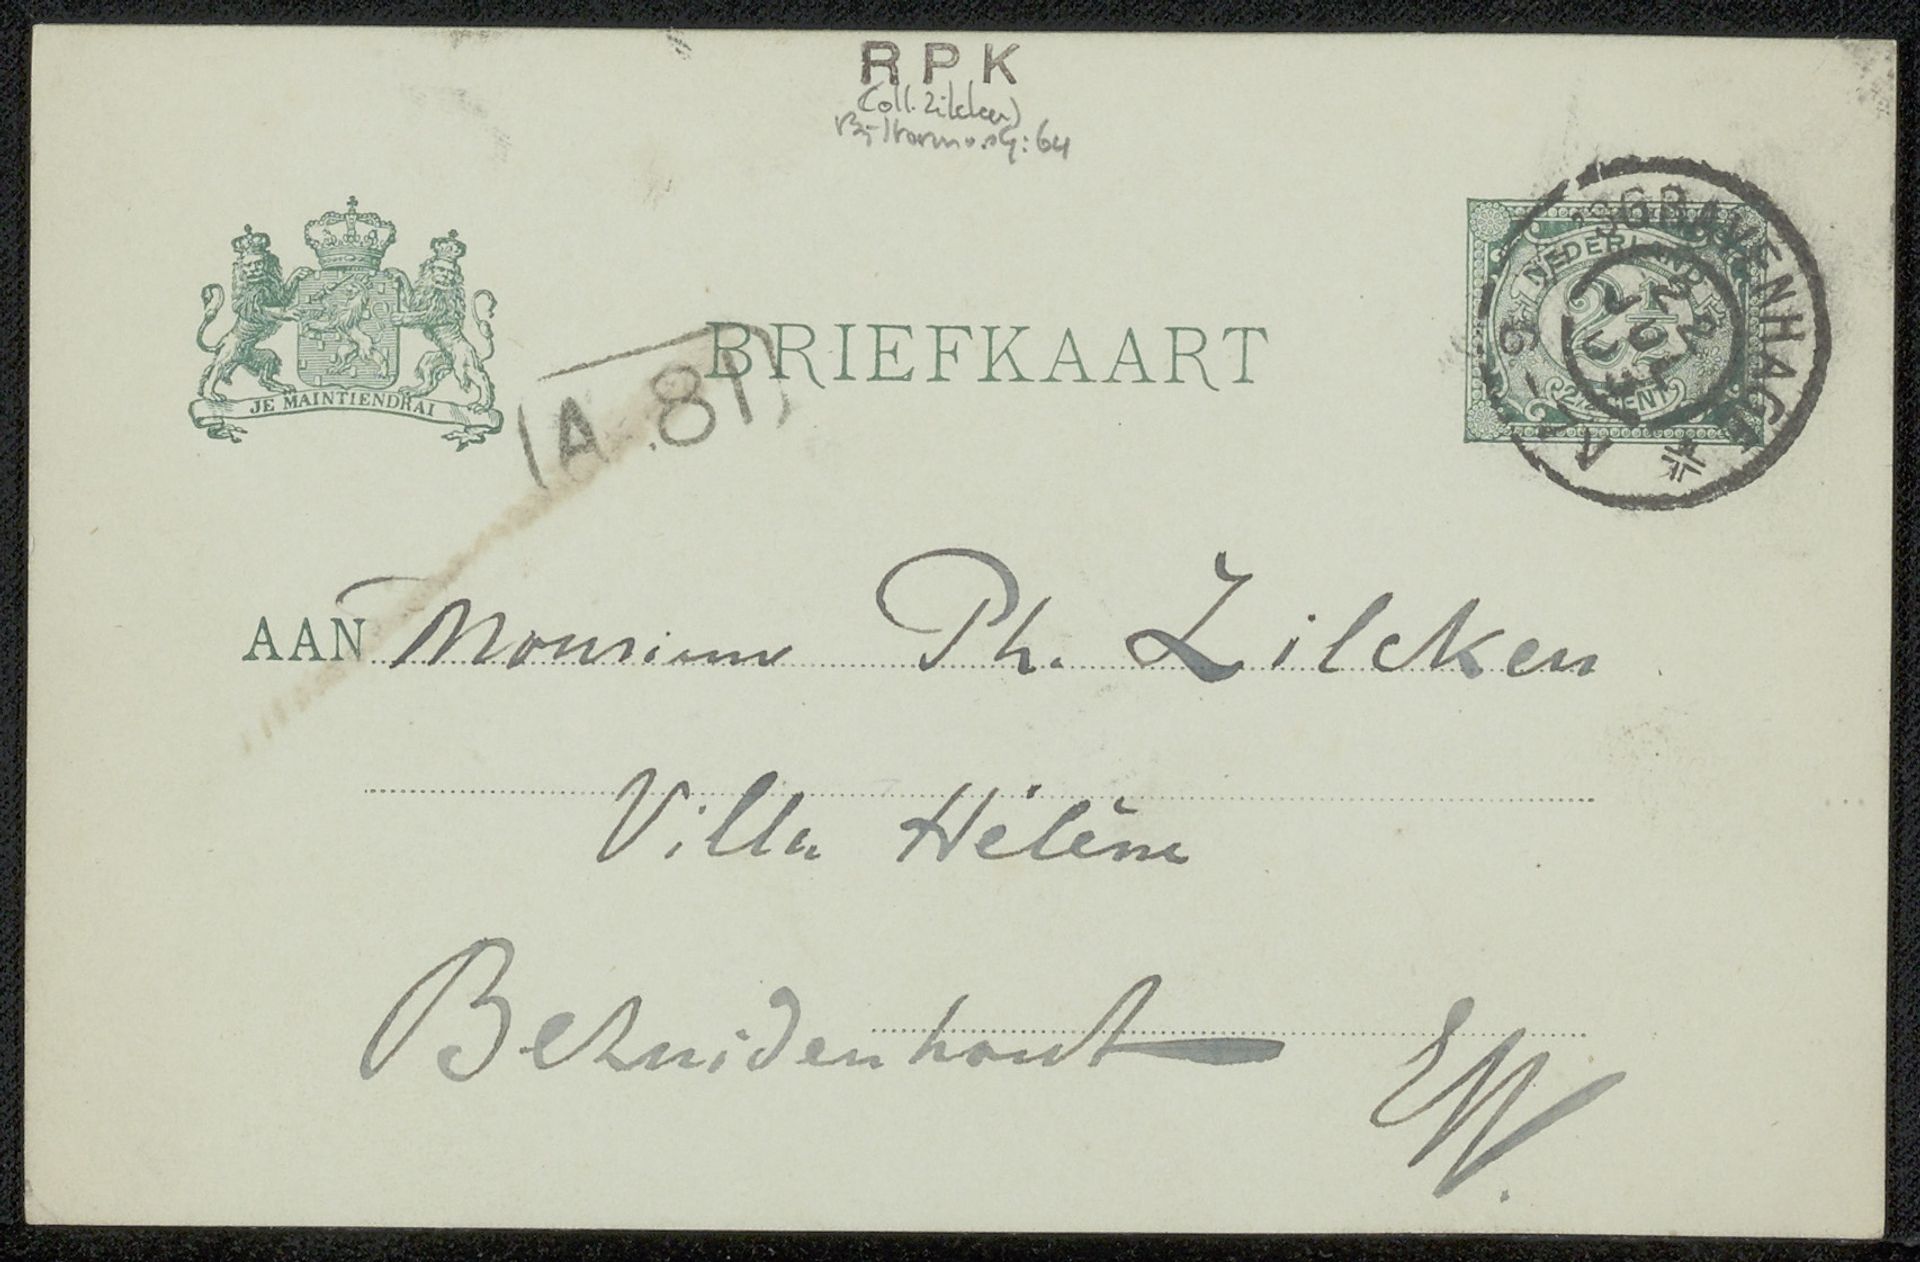 RPK
(Coll. Zilcken)
64
JE MAINTIENDRAI
(A.81)
BRIEFKAART
'SGRAVENHAGE
NEDERLAND
2½
2½ CENT
AAN Monsieur Ph. Zilcken
Villa Hélène
Bezuidenhout
EW.